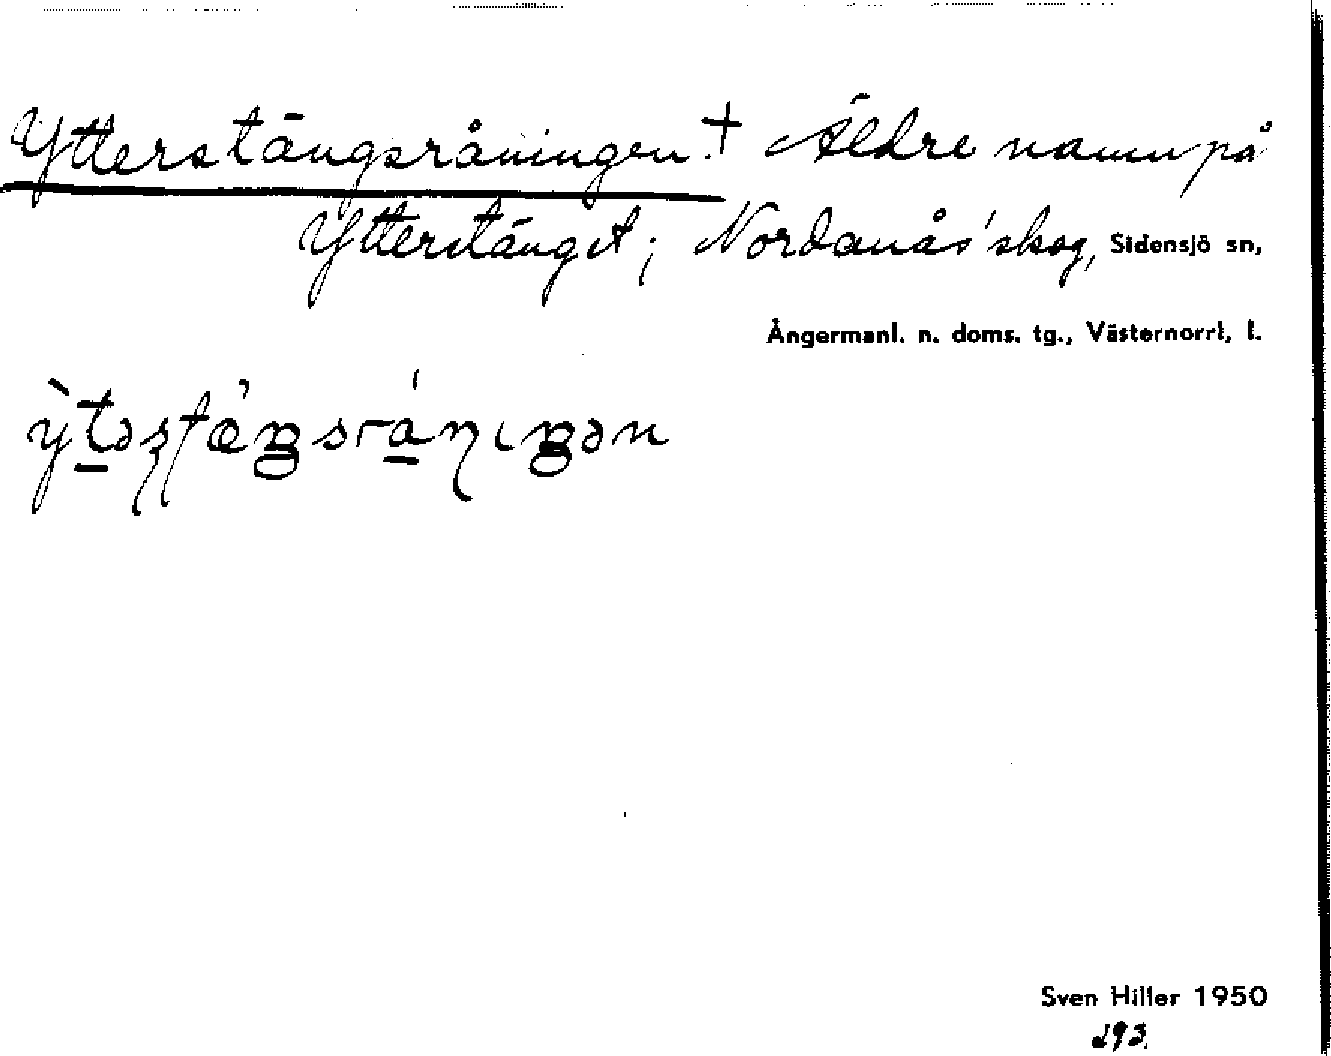 Ytterstängsråningen.† Äldre namn på
Ytterstänget; Nordanås' skog, Sidensjö sn,
Ångermanl. n. doms. tg., Västernorrl. l.
Sven Hiller 1950
293.